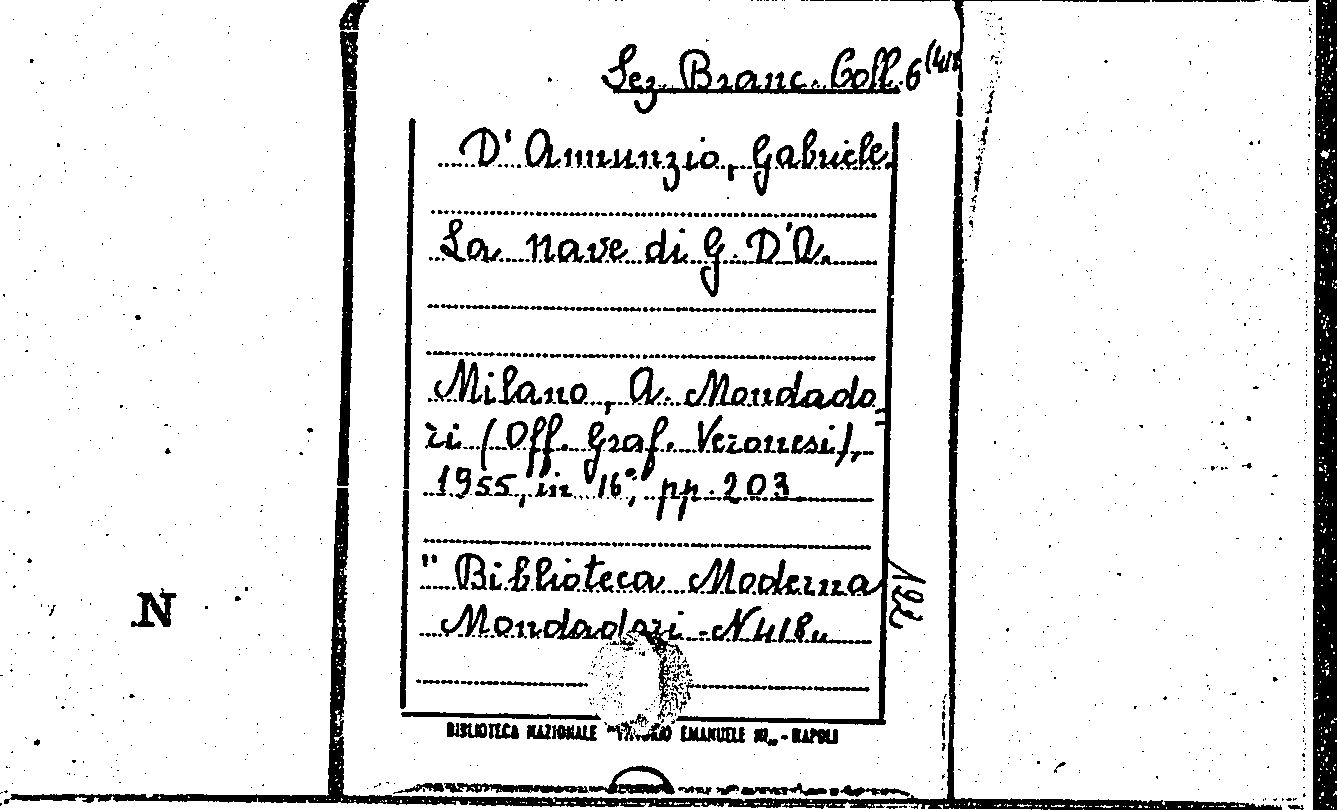 Sez. Branc. Coll. 6 (418
D'Annunzio, Gabriele.
La nave di G. D'A.
Milano, A. Mondado-
ri (Off. Graf. Veronesi),
1955, in 16°; pp. 203.
" Biblioteca Moderna
Mondadori - N 418 „
192
N
BIBLIOTECA NAZIONALE "VITTORIO EMANUELE III„ - NAPOLI